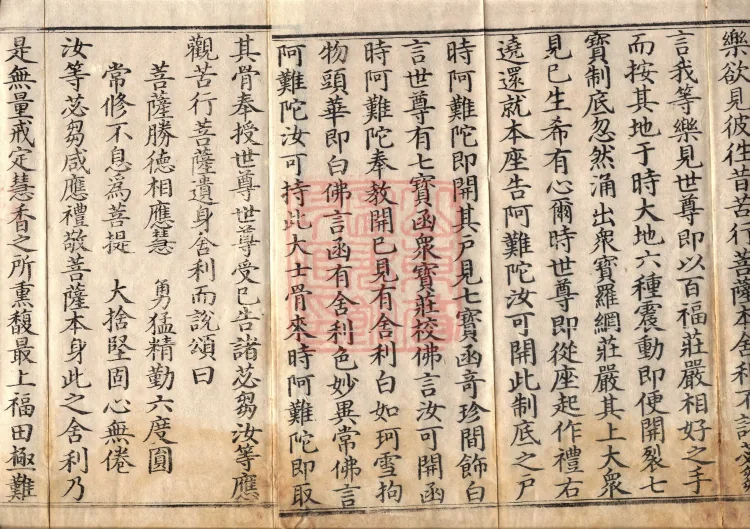 樂欲見彼往昔苦行菩薩本舍利不諸苾芻
言我等樂見世尊即以百福莊嚴相好之手
而按其地于時大地六種震動即便開裂七
寶制底忽然涌出衆寶羅網莊嚴其上大衆
見已生希有心爾時世尊即從座起作禮右
遶還就本座告阿難陀汝可開此制底之戶
時阿難陀即開其戶見七寶函奇珍間飾白
言世尊有七寶函衆寶莊校佛言汝可開函
時阿難陀奉教開已見有舍利白如珂雪拘
物頭華即白佛言函有舍利色妙異常佛言
阿難陀汝可持此大士骨來時阿難陀即取
其骨奉授世尊世尊受已告諸苾芻汝等應
觀苦行菩薩遺身舍利而說頌曰
菩薩勝德相應慧　勇猛精勤六度圓
常修不息爲菩提　大捨堅固心無倦
汝等苾芻咸應禮敬菩薩本身此之舍利乃
是無量戒定慧香之所熏馥最上福田極難